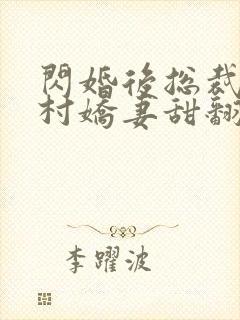 閃婚後总裁
村嬌妻甜翻
李躍波